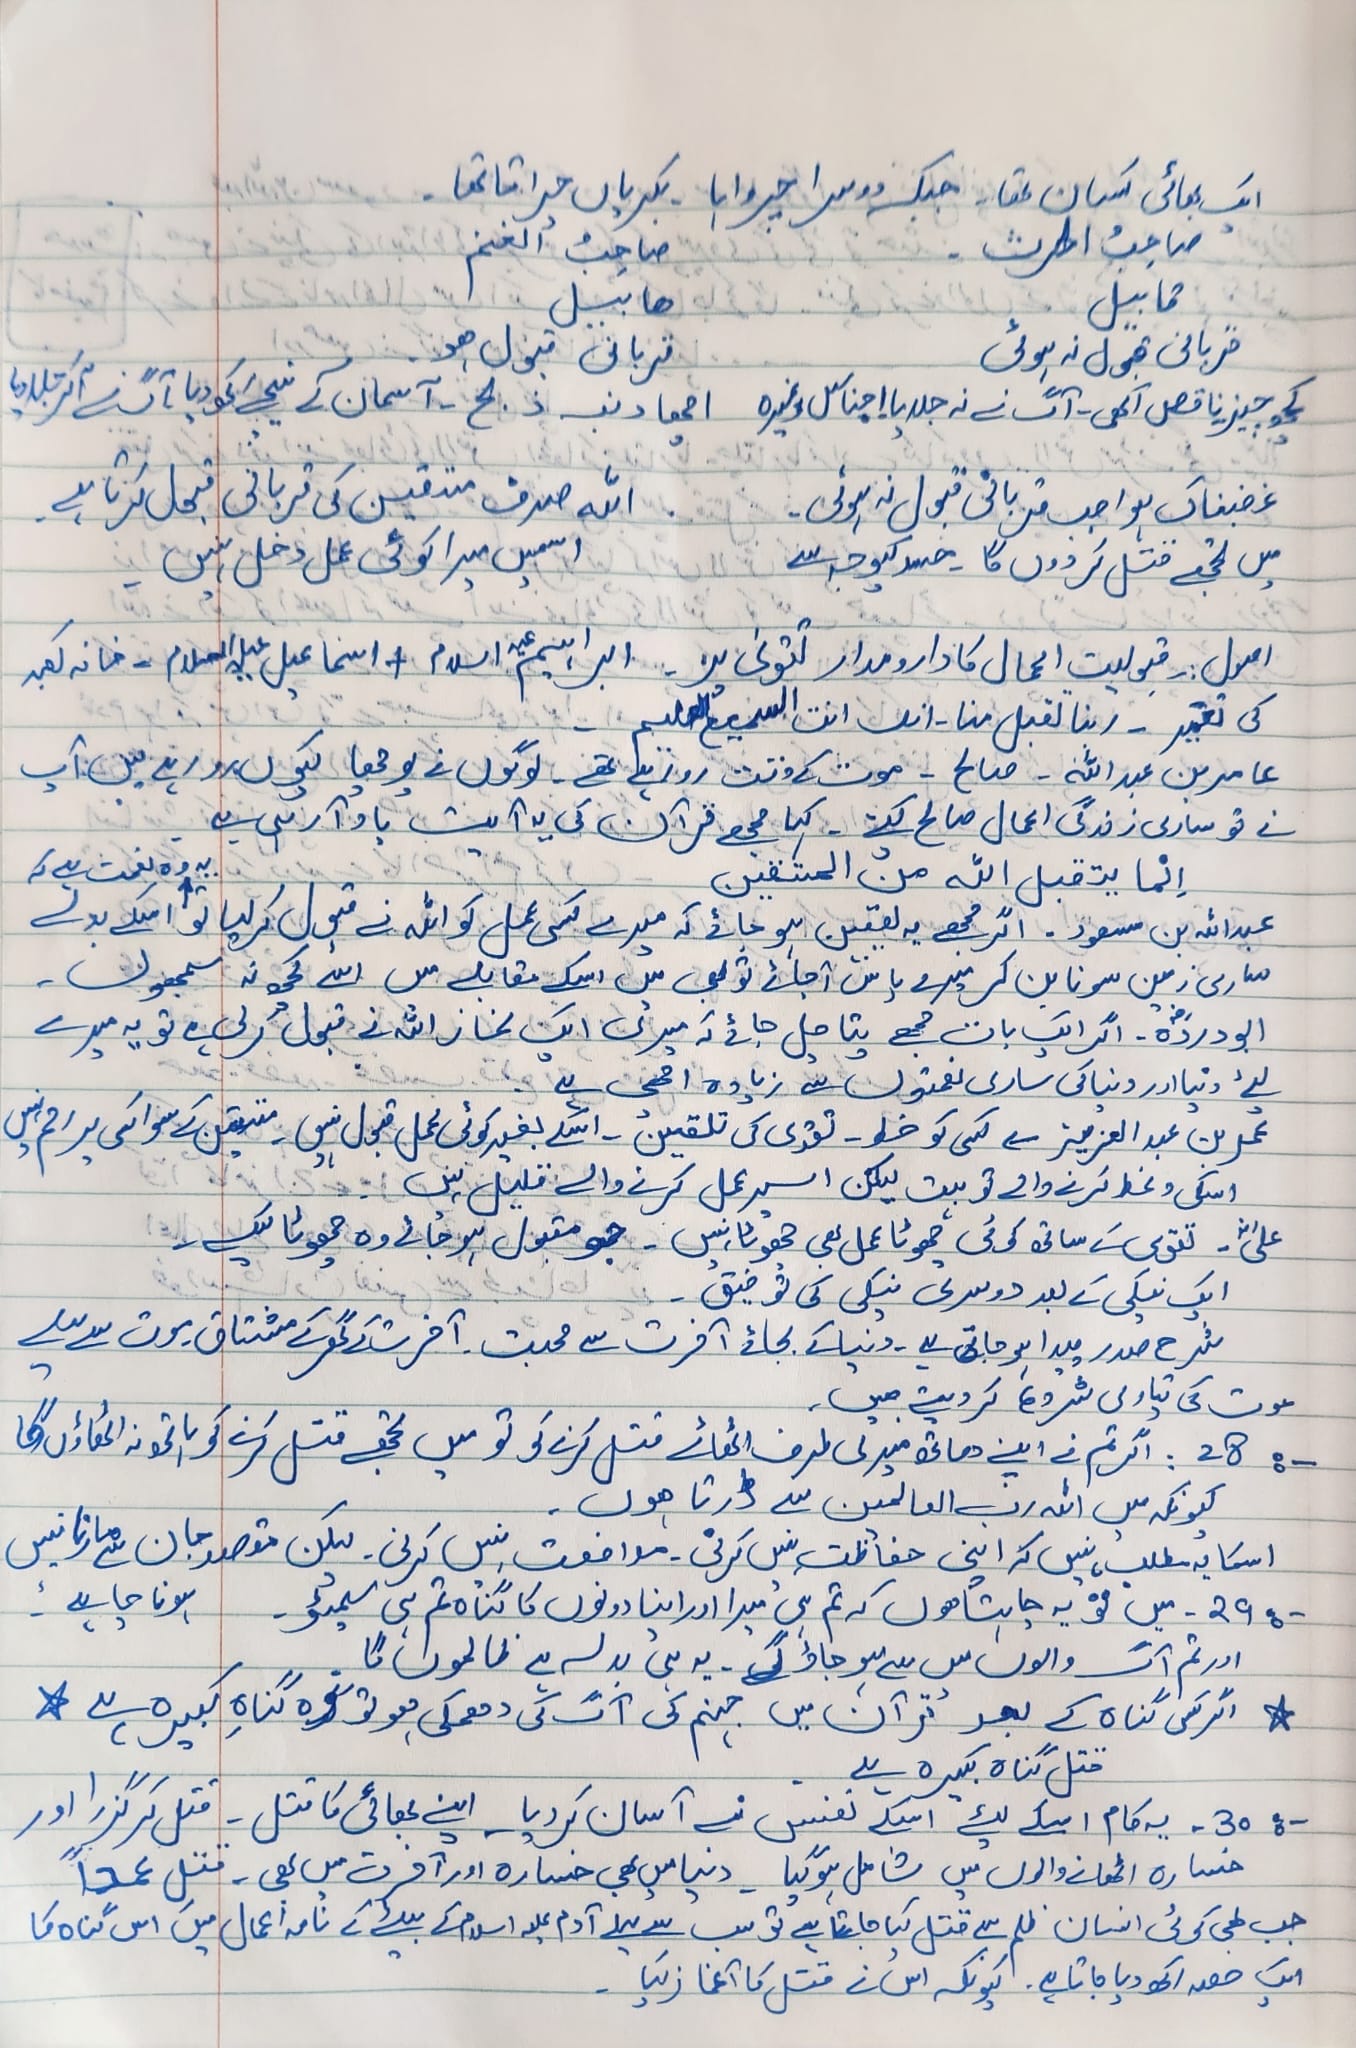 ایک بھائی کسان تھا۔ جبکہ دوسرا چرواہا ۔ بکریاں چراتا تھا۔
صاحبُ الحرث ۔ صاحبُ الغنم
قابیل ھابیل
قربانی قبول نہ ہوئی قربانی قبول ہو۔
کچھ چیز ناقص رکھی۔ آگ نے نہ جلایا اچھا دنبہ ذبح ۔ آسمان کے نیچے رکھ دیا آگ نے آکر جلا دیا
غضبناک ہوا جب قربانی قبول نہ ہوئی۔ اللہ صرف متقین کی قربانی قبول کرتا ہے۔
میں تجھے قتل کر دوں گا ۔ حسد کیوجہ سے اسمیں میرا کوئی عمل دخل نہیں
اصول :۔ قبولیت اعمال کا دارومدار تقویٰ پر ۔ ابراہیم علیہ اسلام + اسماعیل علیہ السلام ۔ خانہ کعبہ
کی تعمیر ۔ ربنا تقبل منا۔ انک انت السمیع العلیم ۔
عامر بن عبداللہ ۔ صالح ۔ موت کے وقت رو رہے تھے ۔ لوگوں نے پوچھا کیوں رو رہے ہیں آپ
نے تو ساری زندگی اعمال صالح کیئے ۔ کہا مجھے قرآن کی یہ آیت یاد آ رہی ہے ۔
إنّما یتقبل اللہ منَ المتقین
یہ وہ نعمت ہے کہ
عبداللہ بن مسعود ۔ اگر مجھے یہ یقین ہو جائے کہ میرے کسی عمل کو اللہ نے قبول کر لیا تو اسکے بدلے
ساری زمین سونا بن کر میرے پاس آجائے تو بھی میں اسکے مقابلے میں اسے کچھ نہ سمجھوں ۔
ابو دردہؓ ۔ اگر ایک بات مجھے پتا چل جائے کہ میری ایک نماز اللہ نے قبول کر لی ہے تو یہ میرے
لیئے دنیا اور دنیا کی ساری نعمتوں سے زیادہ اچھی ہے
عمر بن عبدالعزیز نے کسی کو خط ۔ تقوی کی تلقین ۔ اسکے بغیر کوئی عمل قبول نہیں ۔ متقین کے سوا کسی پر رحم نہیں
اسکی وعظ کرنے والے تو بہت لیکن اسپر عمل کرنے والے قلیل ہیں ۔
علیؓ ۔ تقوی کے ساتھ کوئی چھوٹا عمل بھی چھوٹا نہیں ۔ جو مقبول ہو جائے وہ چھوٹا کیسے ۔
ایک نیکی کے بعد دوسری نیکی کی توفیق ۔
شرح صدر پیدا ہو جاتی ہے ۔ دنیا کے بجائے آخرت سے محبت ۔ آخرت کے گھر کے مشتاق ۔ موت سے پہلے
موت کی تیاری شروع کر دیتے ہیں ۔
28 : اگر تم نے اپنے ہاتھ میری طرف اٹھائے قتل کرنے کو تو میں تجھے قتل کرنے کو ہاتھ نہ اٹھاؤں گا
کیونکہ میں اللہ رب العالمین سے ڈرتا ہوں ۔
اسکا یہ مطلب نہیں کہ اپنی حفاظت نہیں کرنی ۔ مدافعت نہیں کرنی ۔ لیکن مقصد جان سے مارنا نہیں
ہونا چاہیے ۔
29 ۔ میں تو یہ چاہتا ہوں کہ تم ہی میرا اور اپنا دونوں کا گناہ تم ہی سمیٹو ۔
اور تم آگ والوں میں سے ہو جاؤ گے ۔ یہ ہی بدلہ ہے ظالموں کا
☆ اگر کسی گناہ کے بعد قرآن میں جہنم کی آگ کی دھمکی ہو تو وہ گناہِ کبیرہ ہے ☆
قتل گناہ کبیرہ ہے ۔
30 ۔ یہ کام اسکے لیئے اسکے نفس نے آسان کر دیا ۔ اپنے بھائی کا قتل ۔ قتل کر گزرا اور
خسارہ اٹھانے والوں میں شامل ہو گیا ۔ دنیا میں بھی خسارہ اور آخرت میں بھی ۔ قتل عمداً
جب بھی کوئی انسان ظلم سے قتل کیا جاتا ہے تو سب سے پہلے آدم علیہ اسلام کے بیٹے کے نامہ اعمال میں اس گناہ کا
ایک حصہ لکھ دیا جاتا ہے ۔ کیونکہ اس نے قتل کا آغاز کیا ۔